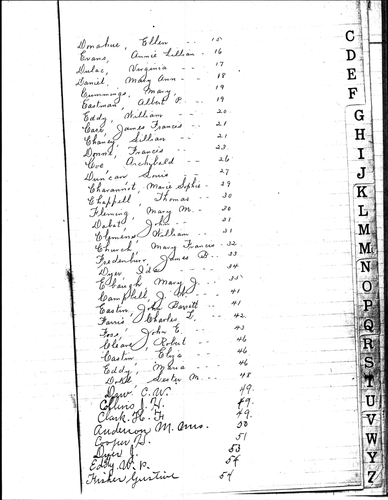 Donahue, Ellen -- 15
Evans, Annie Lillian - 16
Dulac, Virginia -- 17
Daniel, Mary Ann -- 18
Cummings, Mary, 19
Eastman, Albert P. -- 19
Eddy, William -- 20
Carr, James Francis 21
Chaney, Lillian -- 21
Donna, Francis 23
Coe Archybald -- 26
Duncan Louis 27
Charannat, Marie Sophie - 29
Chappell, Thomas -- 30
Fleming, Mary M. -- 30
Dabat, John -- 31
Clemens William -- 31
Church, Mary Francis - 32
Fredenbur, James B. -- 33
Dyer Ida 34
Ebaugh Mary J. -- 35
Campbell, J. W. -- 41
Eastin, John Barrett -- 41
Farris, Charles L. -- 42
Foss, John E. -- 43
Cleave, Robert -- 46
Eastin, Eliza -- 46
Eddy, Maria 46
Lester M. -- 48
Dyer C. W. 49.
Collins J. H. 49.
Clark. H. F. 49.
Anderson M. Mrs. 50
Cooper S. 51
Dyer J. 53
Eddy W. P. 54
Fisher Gustive 54
C
D
E
F
G
H
I
J
K
L
M
M
N
O
P
Q
R
S
T
U
V
W
Y
Z